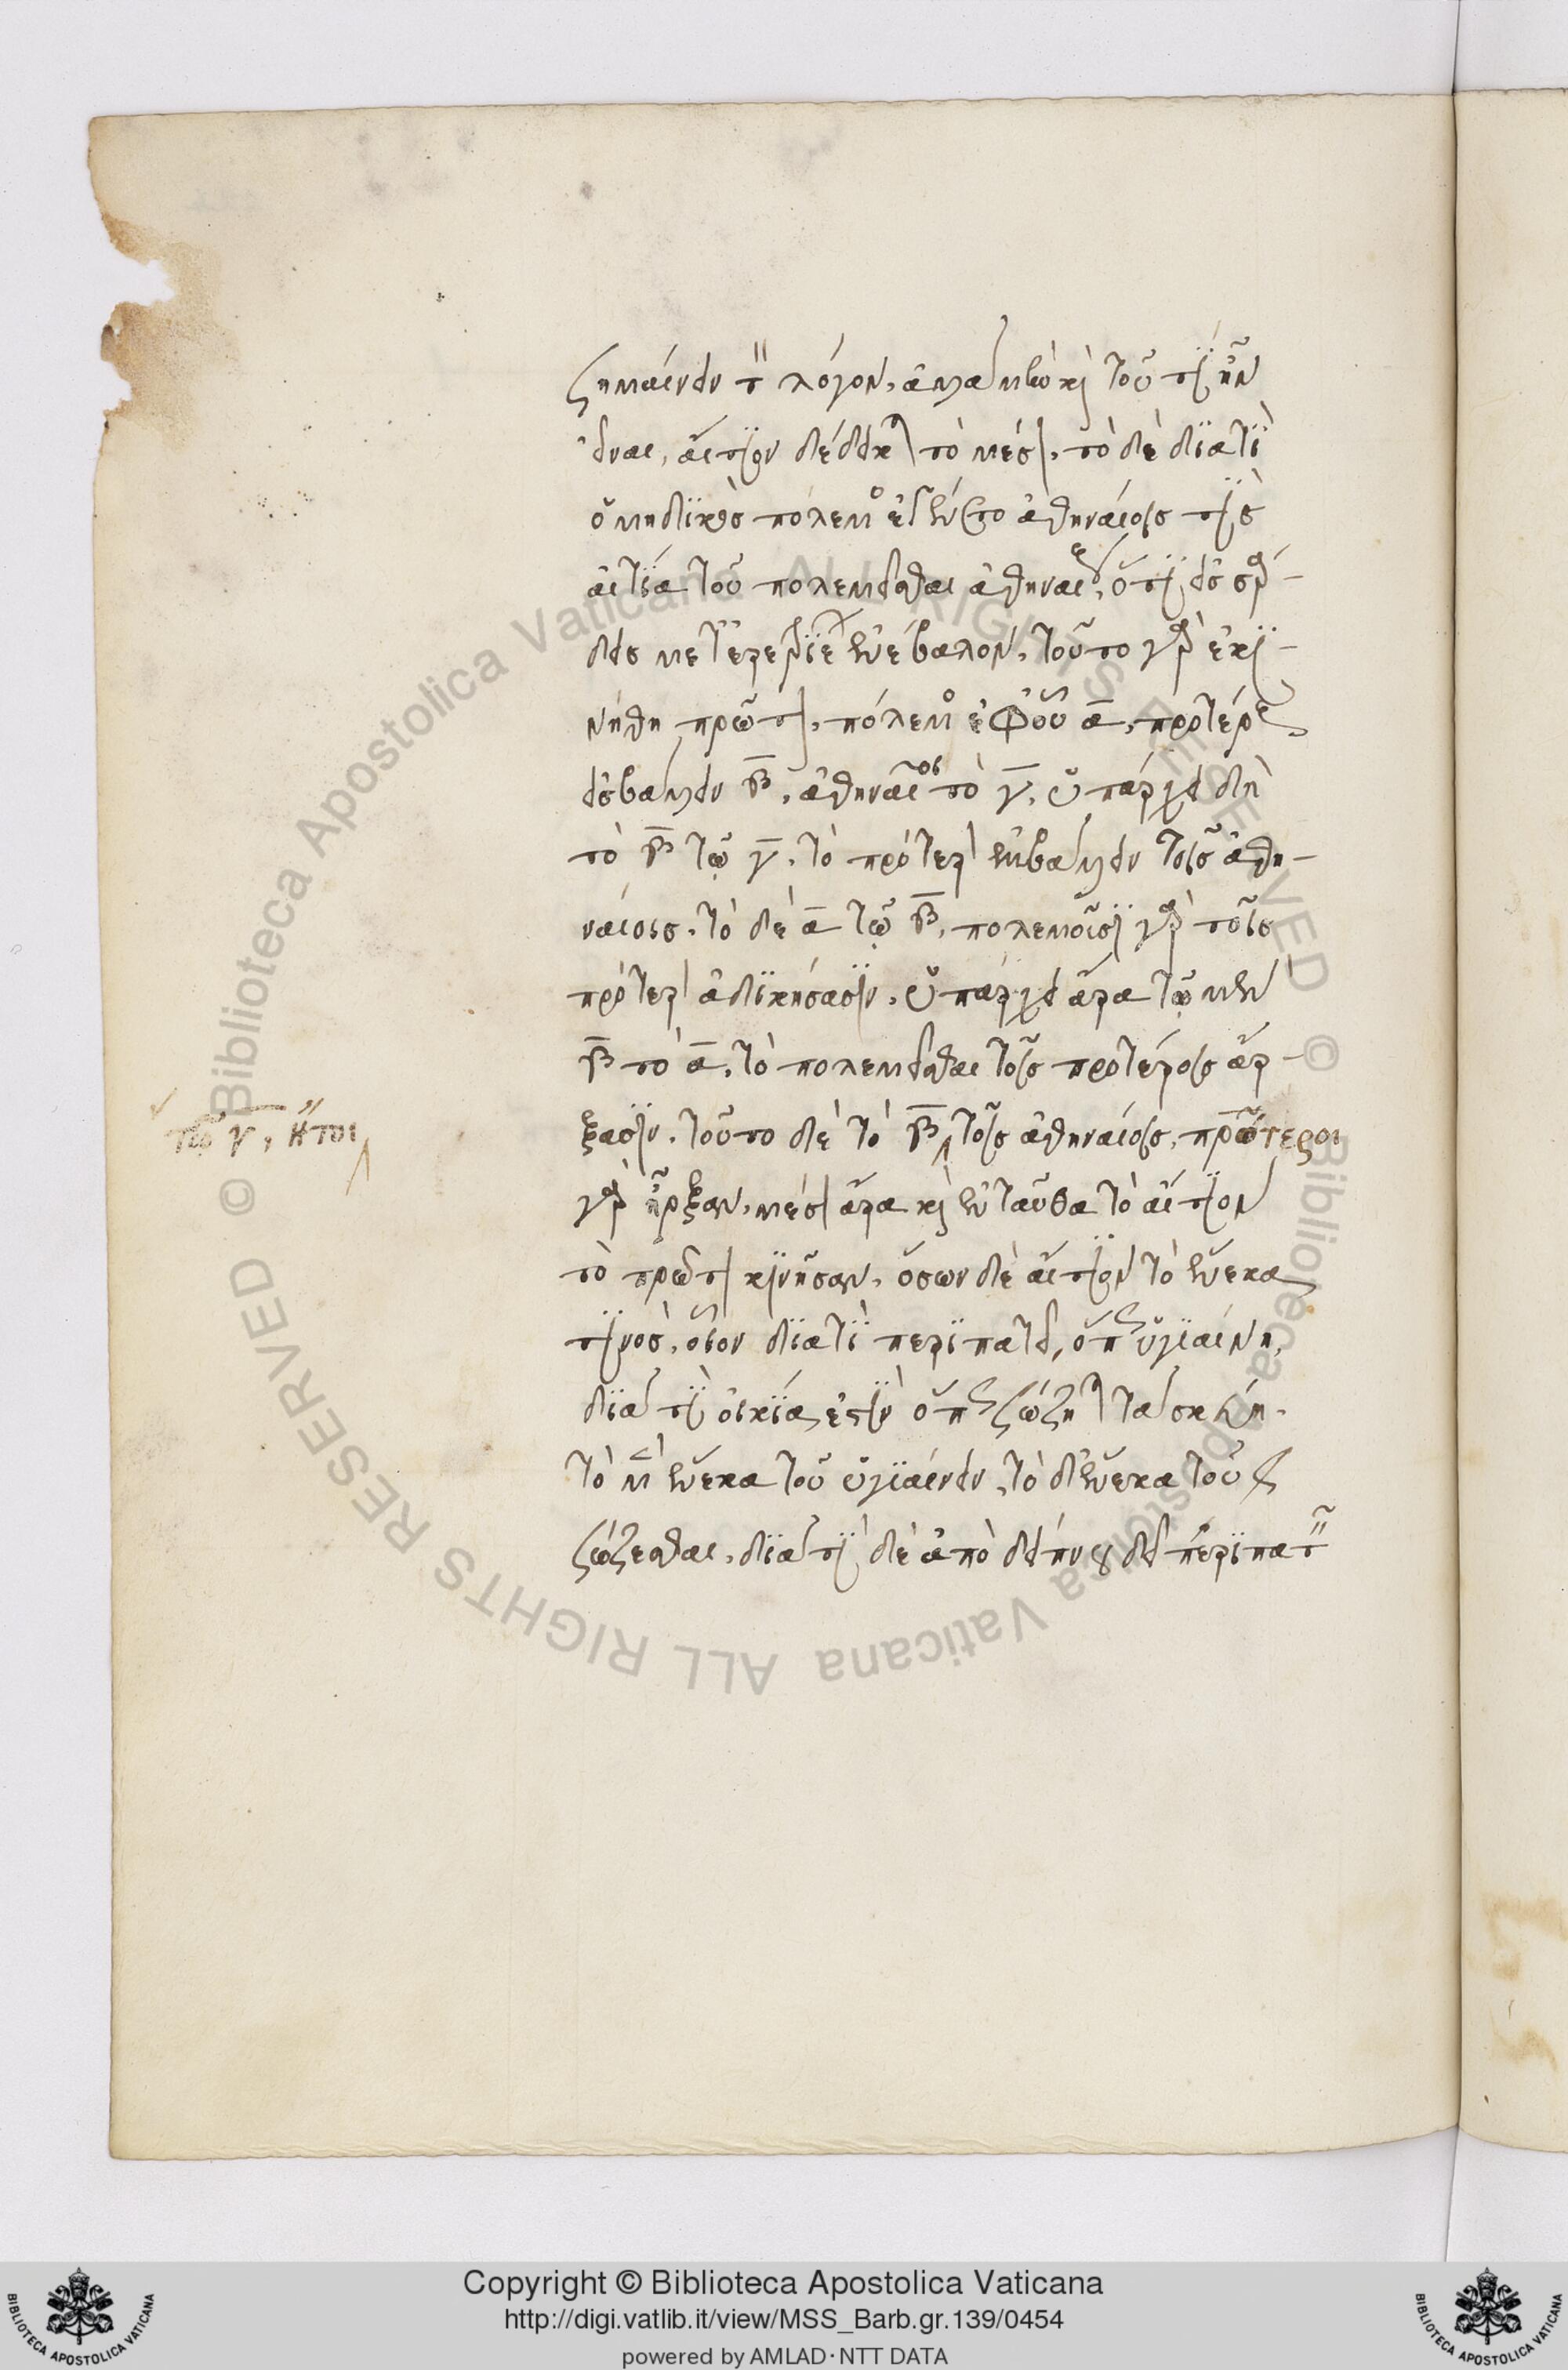 σημαίνειν τὸν λόγον. ἀλλὰ μὴν καὶ τοῦ τί ἦν
εἶναι, αἴτιον δέδεικται τὸ μέσον. τὸ δὲ διατί
ὁ μηδικὸς πόλεμος ἐγένετο ἀθηναίοις τίς
αἰτία τοῦ πολεμεῖσθαι ἀθηναίους, ὅτι εἰς σάρ-
δεις μετ' ἐρετριέων ἐνέβαλον. τοῦτο γὰρ ἐκι-
νήθη πρῶτον. πόλεμος ἐφ' οὗ α, προτέρους
εἰσβαλεῖν β, ἀθηναῖοι τὸ γ. ὑπάρχει δὴ
τὸ β τῷ γ. τὸ πρότερον ἐμβαλεῖν τοῖς ἀθη-
ναίοις. τὸ δὲ α τῷ β. πολεμοῦσι γὰρ τοῖς
πρότερον ἀδικήσασιν. ὑπάρχει ἄρα τῷ μὲν
β τὸ α, τὸ πολεμεῖσθαι τοῖς προτέροις ἄρ-
ξασιν. τοῦτο δὲ τὸ β τοῖς ἀθηναίοις. πρώτεροι
τῷ γ, ἤτοι
γὰρ ἦρξαν. μέσον ἄρα καὶ ἐνταῦθα τὸ αἴτιον
τὸ πρῶτον κινῆσαν. ὅσων δὲ αἴτιον τὸ ἕνεκα
τινός. οἷον διατί περιπατεῖ, ὅπως ὑγιαίνη,
διατί οἰκία ἐστὶν ὅπως σώζηται τὰ σκεύη.
τὸ μὲν ἕνεκα τοῦ ὑγιαίνειν, τὸ δ' ἕνεκα τοῦ
σώζεσθαι. διατί δὲ ἀπὸ δείπνου δεῖ περιπατεῖν
Copyright © Biblioteca Apostolica Vaticana
http://digi.vatlib.it/view/MSS_Barb.gr.139/0454
powered by AMLAD·NTT DATA